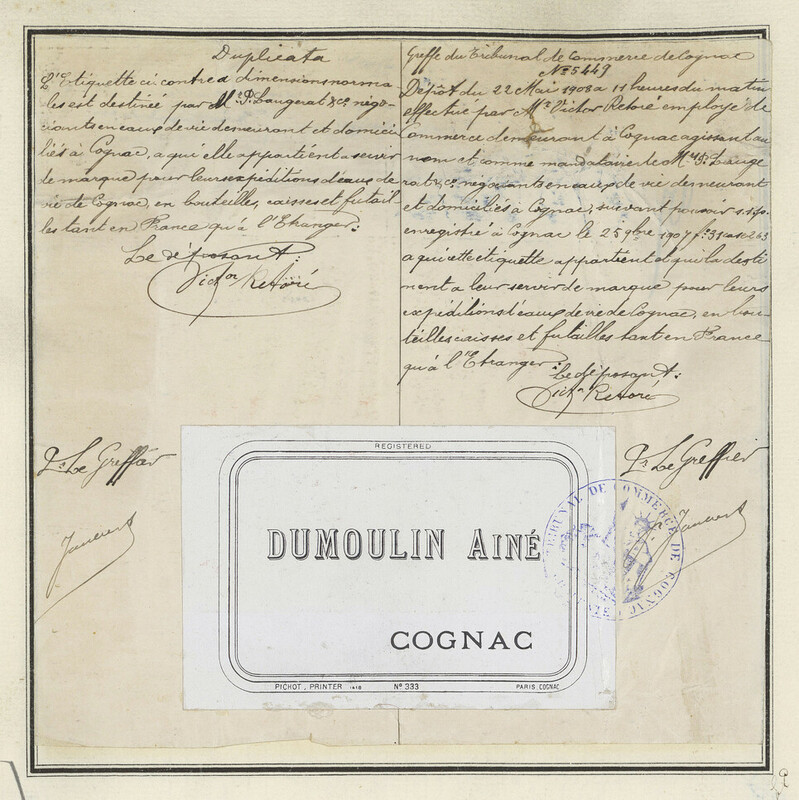 Duplicata
L'Etiquette ci contre a dimensions norma
les est destinée par M. P. Laugerat & Cie négo-
ciants en eaux de vie demeurant et domici
liés à Cognac, a qui elle appartient a servir
de marque pour leurs expéditions d'eaux de
vie de Cognac, en bouteilles, caisses et futail-
les tant en France qu'à l'Etranger.
Le déposant:
Victor Retoré
Pr Le Greffier
Greffe du Tribunal de Commerce de Cognac
No 5449
Dépôt du 22 Mai 1908 a 11 heures du matin
effectué par Mr Victor Retoré employé de
commerce demeurant à Cognac agissant au
nom et comme mandataire de M. P. Lauge
rat & Cie négociants en eaux de vie demeurant
et domiciliés à Cognac, suivant pouvoir s.s.p.
enregistré à Cognac le 25 9bre 1907 fo 31 case 263
a qui cette étiquette appartient et qui la desti
nent a leur servir de marque pour leurs
expéditions d'eaux de vie de Cognac, en bou-
teilles caisses et futailles tant en France
qu'à l'Etranger.
Le déposant:
Victor Retoré
Pr Le Greffier
REGISTERED
DUMOULIN AINÉ
COGNAC
PICHOT, PRINTER No 333 PARIS, COGNAC
TRIBUNAL DE COMMERCE DE COGNAC